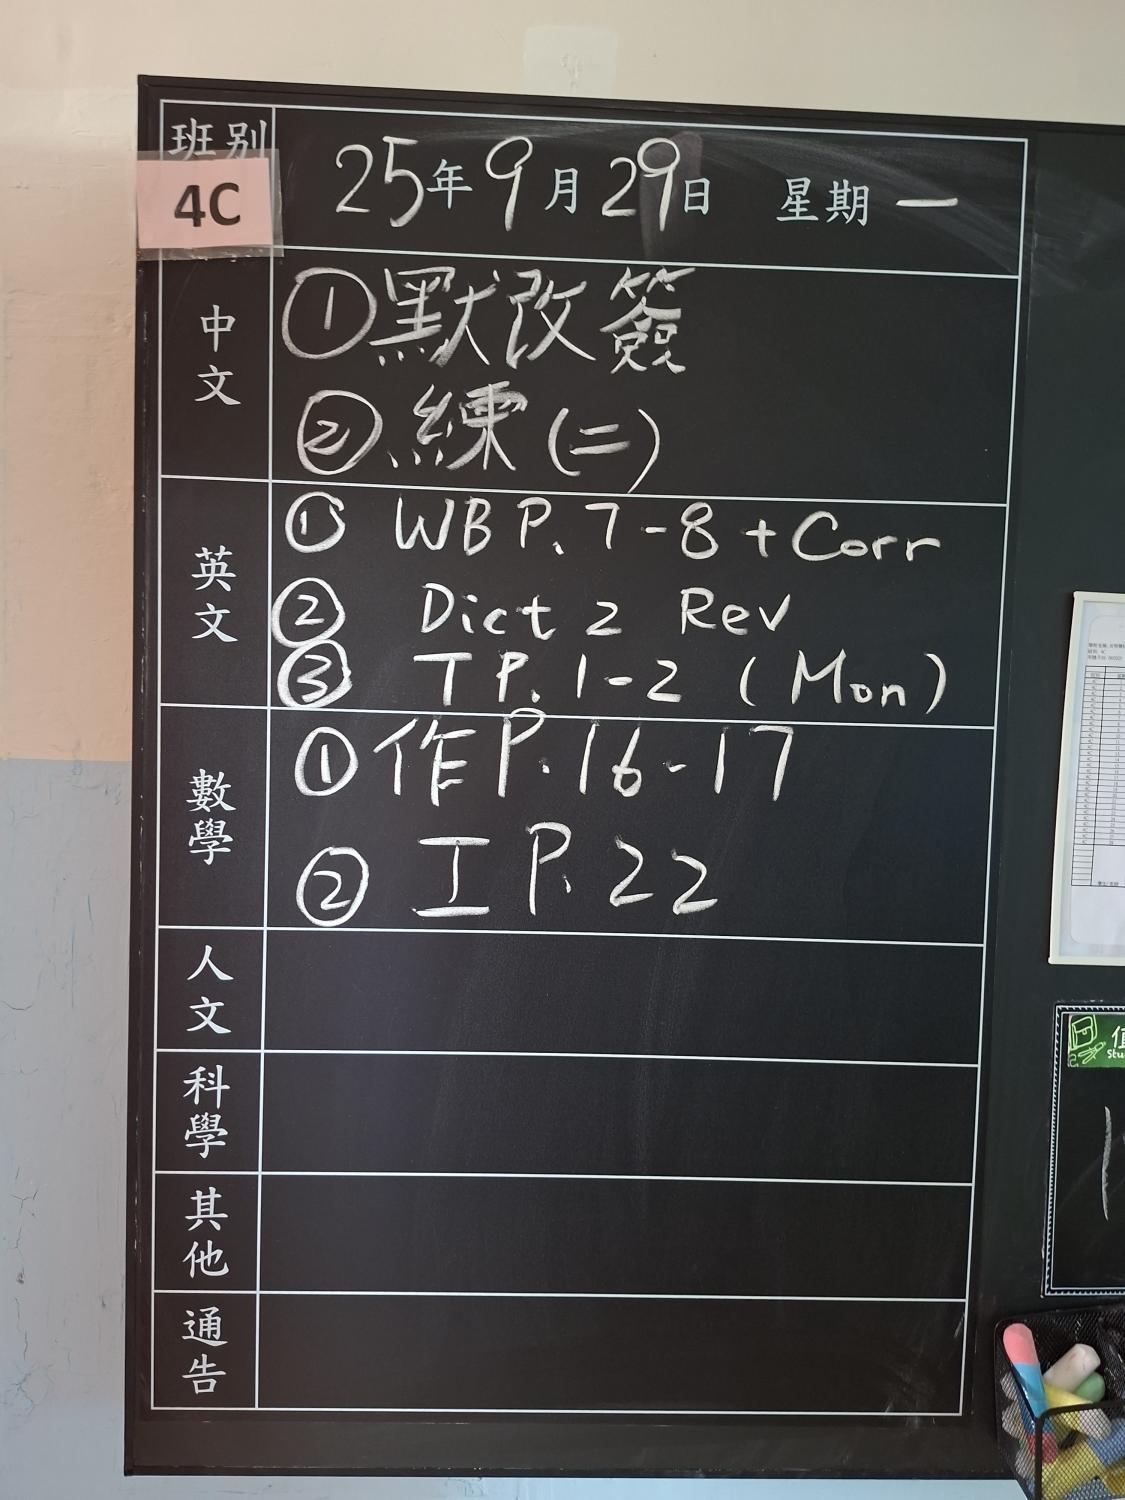 班別
4C
25年9月29日 星期一
中文
①默改簽
②練(二)
英文
① WB P. 7-8 + Corr
② Dict 2 Rev
③ T P. 1-2 (Mon)
數學
①作P. 16-17
② 工 P. 22
人文
科學
其他
通告